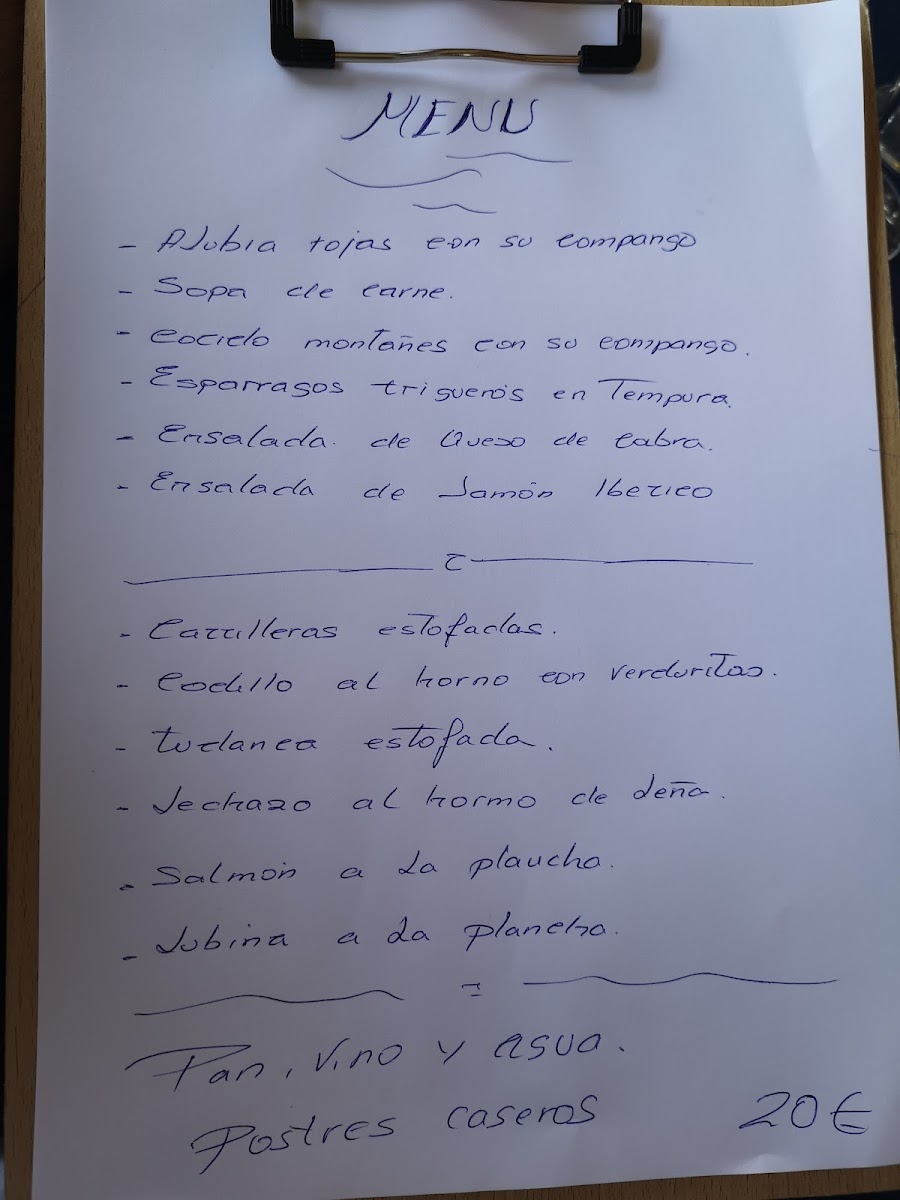 MENU
- Alubia rojas con su compango
- Sopa de carne.
- Cocido montañes con su compango.
- Esparragos trigueros en Tempura.
- Ensalada. de Queso de Cabra.
- Ensalada de Jamón Iberico
- Carrilleras estofadas.
- Codillo al horno con verduritas.
- Tudanca estofada.
- Lechazo al horno de leña.
- Salmón a La plancha.
- Lubina a La plancha.
Pan, Vino y agua.
Postres caseros 20€